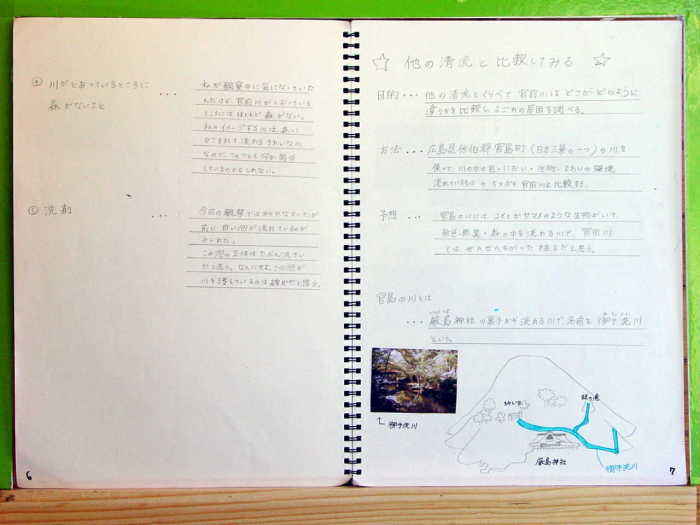 ④ 川がとおっているところに
森がないこと
...
私が観察中に気になっていた
んだけど、宮前川がとおっている
ところにはほとんど森がない。
私のイメージする川は、森に
かこまれて流れるきれいな川。
なので、もしかしたら何か関係
しているのかもしれない。
⑤ 洗剤
...
今回の観察では分からなかったが
前に白い泡が流れているのが
みられた。
この泡の正体はたぶん洗ざい
だと思う。なんにせよ、この泡が
川を汚しているのは確かだと思う。
6
☆ 他の清流と比較してみる ☆
目的 ... 他の清流とくらべて宮前川は どこがどのように
違うかを比較し、よごれの原因を調べる。
方法 ... 広島県佐伯郡宮島町(日本三景の一つ)の川を
使って、川の水の色・におい・生物・まわりの環境
流れているもの の 5つを宮前川と比較する。
予想 ... 宮島の川には、コイとかヤマメのような生物がいて、
無色・無臭・森の中を流れる川で、宮前川
とは ぜんぜんちがった様子だと思う。
宮島の川とは
... 厳島神社の裏手から流れる川で、名前を「御手洗川」
という。
↑ 御手洗川
紅葉谷
厳島神社
御手洗川
7